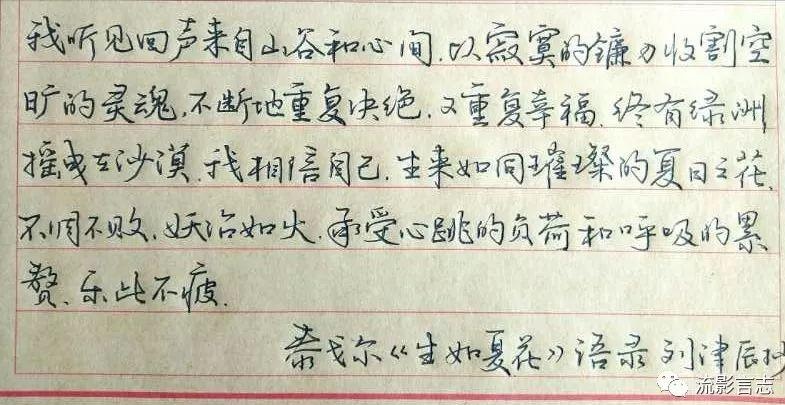 我听见回声来自山谷和心间.以寂寞的镰刀收割空
旷的灵魂.不断地重复决绝.又重复幸福.终有绿洲
摇曳在沙漠.我相信自己.生来如同璀璨的夏日之花.
不凋不败.妖冶如火.承受心跳的负荷和呼吸的累
赘.乐此不疲.
泰戈尔《生如夏花》语录 刘津辰抄
流影言志